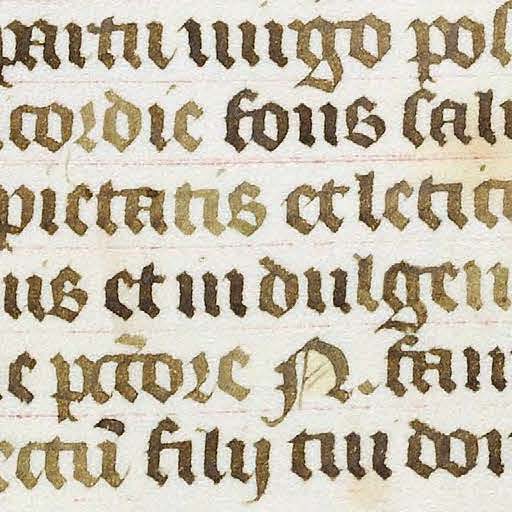 partu uirgo pol
cordie fons salu
pietatis et leticie
us et indulgen
e pctōre N. fam
ectū filij tui dom